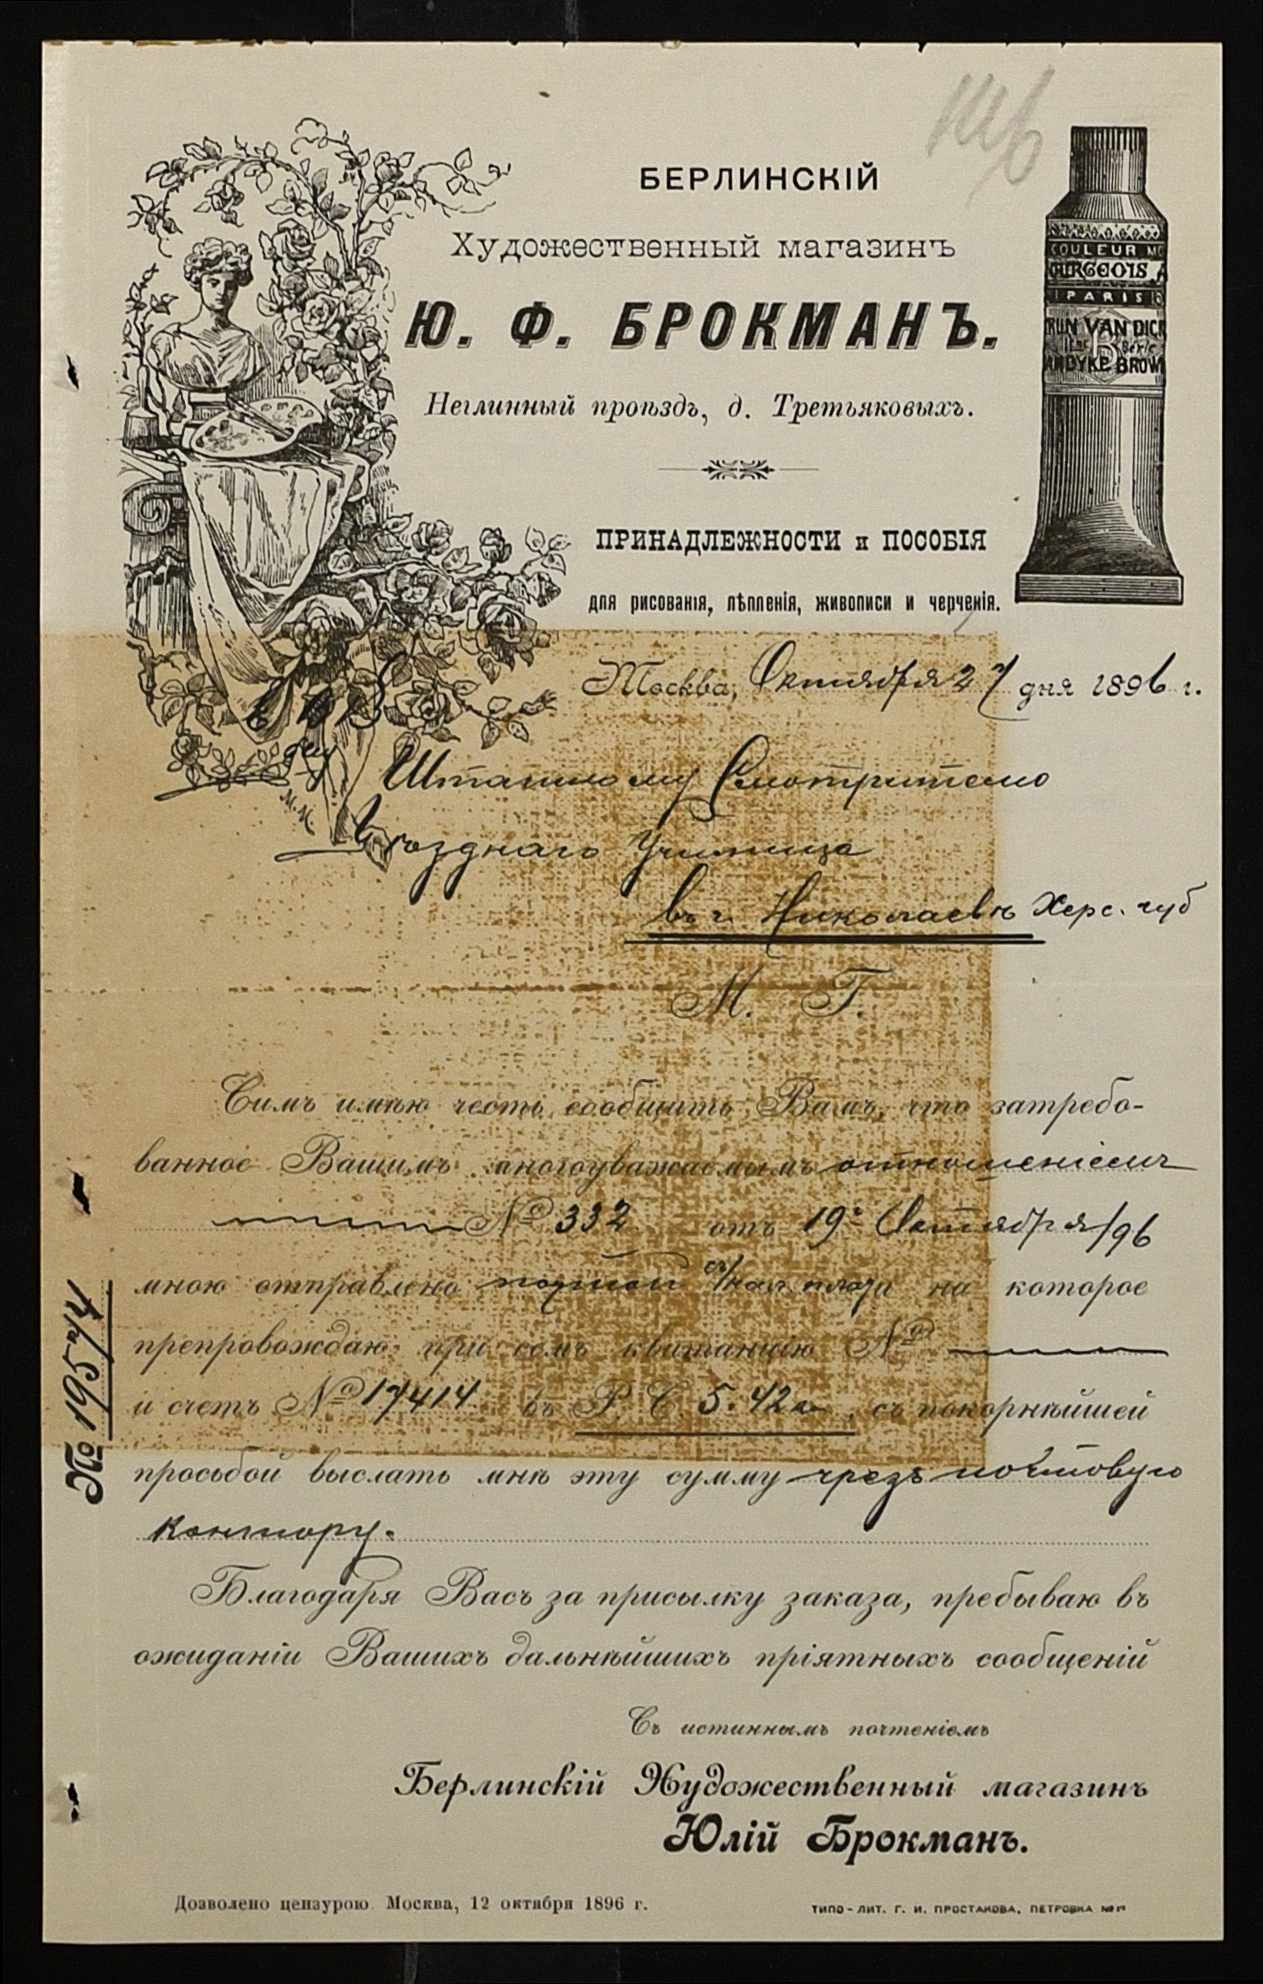 БЕРЛИНСКІЙ
Художественный магазинъ
Ю. Ф. БРОКМАНЪ.
Неглинный проѣздъ, д. Третьяковыхъ.
ПРИНАДЛЕЖНОСТИ и ПОСОБІЯ
для рисованія, лѣпленія, живописи и черченія.
COULEUR MO
URGEOIS A
PARIS
RUN VAN DICK
ANDYKE BROW
Москва, Октября 27 дня 1896 г.
Штатному Смотрителю
Уѣзднаго Училища
въ г. Николаевѣ Херс. губ
М. Г.
М.М
Симъ имѣю честь сообщить Вамъ, что затребо-
ванное Вашимъ многоуважаемымъ отношеніемъ
№ 332 отъ 19го Октября/96
мною отправлено почтой съ/нал. плат на которое
препровождаю при семъ квитанцію №
и счетъ № 17414 въ Р. С. 5. 42к, съ покорнѣйшей
просьбой выслать мнѣ эту сумму чрезъ почтовую
контору.
Благодаря Васъ за присылку заказа, пребываю въ
ожиданіи Вашихъ дальнѣйшихъ пріятныхъ сообщеній
Съ истиннымъ почтеніемъ
Берлинскій Художественный магазинъ
Юлій Брокманъ.
№ 19574
Дозволено цензурою Москва, 12 октября 1896 г.
ТИПО-ЛИТ. Г. И. ПРОСТАКОВА, ПЕТРОВКА